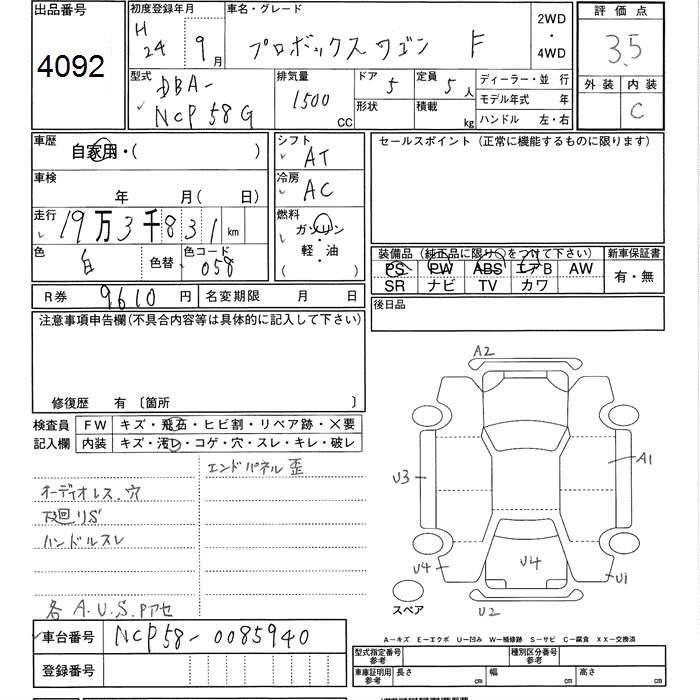 出品番号
4092
初度登録年月
H 24 9月
車名・グレード
プロボックスワゴン F
2WD
・
4WD
評価点
3.5
外装 内装
C
型式
DBA-
NCP58G
排気量
1500
CC
ドア 5
形状
定員 5人
積載 kg
ディーラー・並行
モデル年式 年
ハンドル 左・右
車歴
自家用・( )
車検
年 月( 日)
走行
19万3千831km
色
白
色替
色コード
058
シフト
AT
冷房
AC
燃料
ガソリン
・
軽・油
( )
セールスポイント(正常に機能するものに限ります)
装備品(純正品に限り○をつけて下さい)
PS PW ABS エアB AW
SR ナビ TV カワ
新車保証書
有・無
後日品
R券 9610円
名変期限 月 日
注意事項申告欄(不具合内容等は具体的に記入して下さい)
修復歴 有 〔箇所 〕
検査員
記入欄
FW キズ・飛石・ヒビ割・リペア跡・×要
内装 キズ・汚レ・コゲ・穴・スレ・キレ・破レ
エンドパネル歪
オーディオレス.穴
下廻リS
ハンドルスレ
各A.U.S.Pアセ
A2
U3
A1
U4
U4
U1
U2
スペア
A-キズ E-エクボ U-凹み W-補修跡 S-サビ C-腐食 XX-交換済
車台番号 NCP58-0085940
登録番号
型式指定番号
参考
種別区分番号
参考
車庫証明用
参考
長さ cm 幅 cm 高さ cm